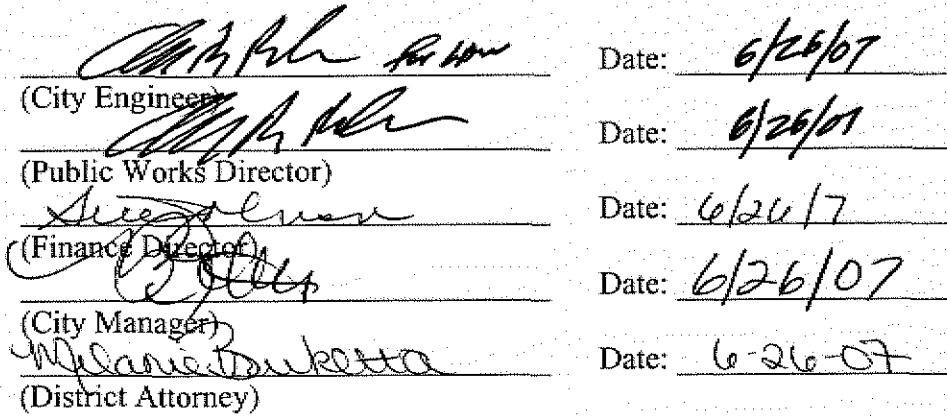 for Date: 6/26/07
(City Engineer)
Date: 6/26/07
(Public Works Director)
Date: 6/26/7
(Finance Director)
Date: 6/26/07
(City Manager)
Melanie Date: 6-26-07
(District Attorney)